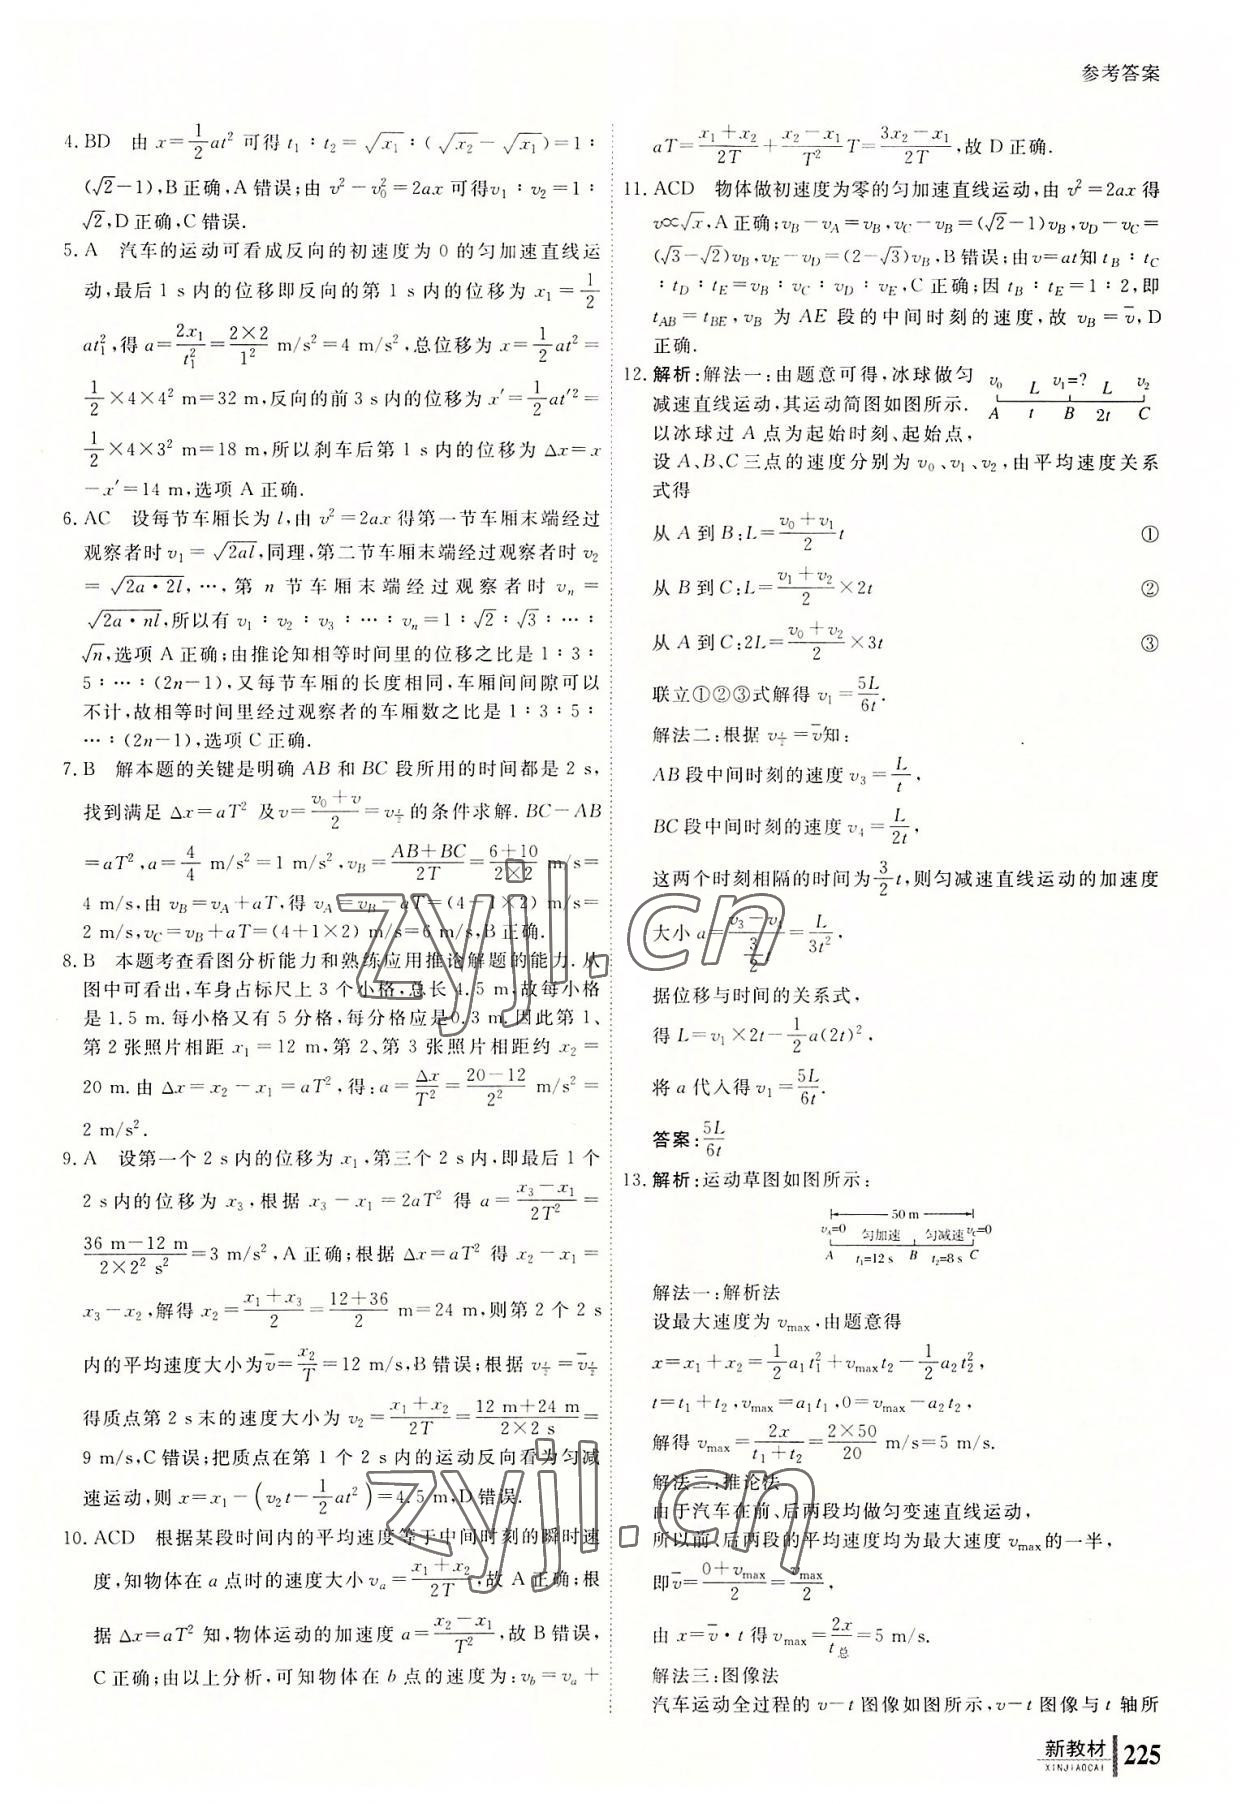 参考答案
4. BD 由 x=1/2at² 可得 t₁∶t₂=√x₁∶(√x₂-√x₁)=1∶
(√2-1),B正确,A错误;由 v²-v₀²=2ax 可得v₁∶v₂=1∶
√2,D正确,C错误.
5. A 汽车的运动可看成反向的初速度为0的匀加速直线运
动,最后1 s内的位移即反向的第1 s内的位移为 x₁=1/2
at₁²,得 a=2x₁/t₁²=2×2/1² m/s²=4 m/s²,总位移为 x=1/2at²=
1/2×4×4² m=32 m,反向的前3 s内的位移为 x′=1/2at′²=
1/2×4×3² m=18 m,所以刹车后第1 s内的位移为 Δx=x
-x′=14 m,选项A正确.
6. AC 设每节车厢长为l,由 v²=2ax得第一节车厢末端经过
观察者时 v₁=√2al,同理,第二节车厢末端经过观察者时 v₂
=√2a·2l,…,第 n 节车厢末端经过观察者时 vₙ=
√2a·nl,所以有 v₁∶v₂∶v₃∶…∶vₙ=1∶√2∶√3∶…∶
√n,选项A正确;由推论知相等时间里的位移之比是1∶3∶
5∶…∶(2n-1),又每节车厢的长度相同,车厢间间隙可以
不计,故相等时间里经过观察者的车厢数之比是1∶3∶5∶
…∶(2n-1),选项C正确.
7. B 解本题的关键是明确AB和BC段所用的时间都是2 s,
找到满足 Δx=aT² 及v̄=(v₀+v)/2=v_{t/2}的条件求解. BC-AB
=aT²,a=4/4 m/s²=1 m/s²,v_B=(AB+BC)/2T=(6+10)/(2×2) m/s=
4 m/s,由 v_B=v_A+aT,得 v_A=v_B-aT=(4-1×2) m/s=
2 m/s,v_C=v_B+aT=(4+1×2) m/s=6 m/s,B正确.
8. B 本题考查看图分析能力和熟练应用推论解题的能力.从
图中可看出,车身占标尺上3个小格,总长4.5 m,故每小格
是1.5 m.每小格又有5分格,每分格应是0.3 m.因此第1、
第2张照片相距 x₁=12 m,第2、第3张照片相距约 x₂=
20 m.由 Δx=x₂-x₁=aT²,得:a=Δx/T²=(20-12)/2² m/s²=
2 m/s².
9. A 设第一个2 s内的位移为 x₁,第三个2 s内,即最后1个
2 s内的位移为 x₃,根据 x₃-x₁=2aT² 得 a=(x₃-x₁)/2T²=
(36 m-12 m)/(2×2² s²)=3 m/s²,A正确;根据 Δx=aT² 得 x₂-x₁=
x₃-x₂,解得 x₂=(x₁+x₃)/2=(12+36)/2 m=24 m,则第2个2 s
内的平均速度大小为v̄=x₂/T=12 m/s,B错误;根据 v_{t/2}=v̄_{t/2}
得质点第2 s末的速度大小为 v₂=(x₁+x₂)/2T=(12 m+24 m)/(2×2 s)=
9 m/s,C错误;把质点在第1个2 s内的运动反向看为匀减
速运动,则 x=x₁-(v₂t-1/2at²)=4.5 m,D错误.
10. ACD 根据某段时间内的平均速度等于中间时刻的瞬时速
度,知物体在a点时的速度大小 v_a=(x₁+x₂)/2T,故A正确;根
据 Δx=aT² 知,物体运动的加速度 a=(x₂-x₁)/T²,故B错误,
C正确;由以上分析,可知物体在b点的速度为:v_b=v_a+
aT=(x₁+x₂)/2T+(x₂-x₁)/T² T=(3x₂-x₁)/2T,故D正确.
11. ACD 物体做初速度为零的匀加速直线运动,由 v²=2ax 得
v∝√x,A正确;v_B-v_A=v_B,v_C-v_B=(√2-1)v_B,v_D-v_C=
(√3-√2)v_B,v_E-v_D=(2-√3)v_B,B错误;由v=at知 t_B∶t_C
∶t_D∶t_E=v_B∶v_C∶v_D∶v_E,C正确;因 t_B∶t_E=1∶2,即
t_AB=t_BE,v_B 为 AE 段的中间时刻的速度,故 v_B=v̄,D
正确.
12. 解析:解法一:由题意可得,冰球做匀
减速直线运动,其运动简图如图所示.
以冰球过A点为起始时刻、起始点,
v₀ L v₁=? L v₂
A t B 2t C
设A、B、C三点的速度分别为 v₀、v₁、v₂,由平均速度关系
式得
从A到B:L=(v₀+v₁)/2 t ①
从B到C:L=(v₁+v₂)/2×2t ②
从A到C:2L=(v₀+v₂)/2×3t ③
联立①②③式解得 v₁=5L/6t.
解法二:根据 v_{t/2}=v̄知:
AB段中间时刻的速度 v₃=L/t,
BC段中间时刻的速度 v₄=L/2t,
这两个时刻相隔的时间为3/2t,则匀减速直线运动的加速度
大小 a=(v₃-v₄)/(3/2 t)=L/3t²,
据位移与时间的关系式,
得 L=v₁×2t-1/2a(2t)²,
将a代入得 v₁=5L/6t.
答案:5L/6t
13. 解析:运动草图如图所示:
50 m
v_A=0 匀加速 匀减速 v_C=0
A t₁=12 s B t₂=8 s C
解法一:解析法
设最大速度为 v_max,由题意得
x=x₁+x₂=1/2a₁t₁²+v_max t₂-1/2a₂t₂²,
t=t₁+t₂,v_max=a₁t₁,0=v_max-a₂t₂,
解得 v_max=2x/(t₁+t₂)=2×50/20 m/s=5 m/s.
解法二:推论法
由于汽车在前、后两段均做匀变速直线运动,
所以前、后两段的平均速度均为最大速度 v_max的一半,
即v̄=(0+v_max)/2=v_max/2,
由 x=v̄·t得 v_max=2x/t总=5 m/s.
解法三:图像法
汽车运动全过程的v-t图像如图所示,v-t图像与t轴所
新教材
XINJIAOCAI
225
zyjl.cn
zyjl.cn